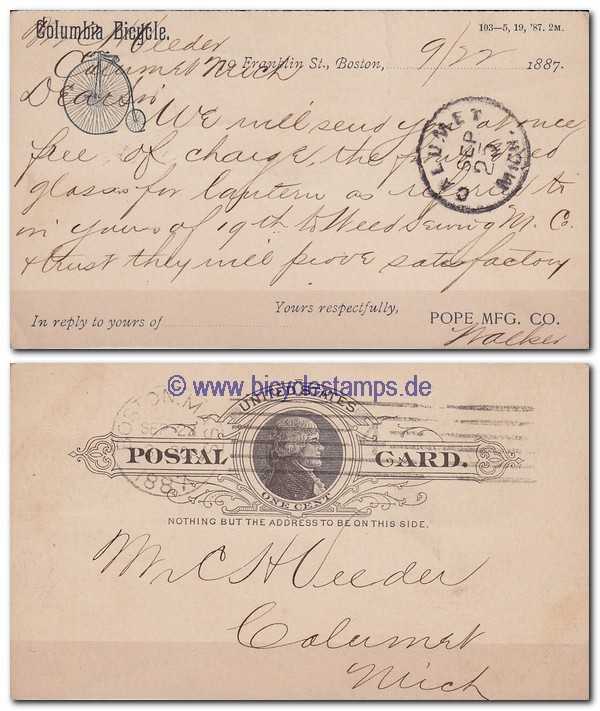 Columbia Bicycle.
103—5, 19, '87. 2M.
Mr C H Veeder
Calumet Mich
79 Franklin St., Boston, 9/22 1887.
Dear Sir
We will send you at once
free of charge, the
glass for lantern as referred to
in yours of 19th to Weed Sewing M. Co.
& trust they will prove satisfactory
CALUMET MICH.
SEP
Yours respectfully,
In reply to yours of
POPE MFG. CO.
Walker
© www.bicyclestamps.de
BOSTON, MASS
SEP 22
1887
UNITED STATES
POSTAL CARD.
ONE CENT
NOTHING BUT THE ADDRESS TO BE ON THIS SIDE.
Mr C H Veeder
Calumet
Mich